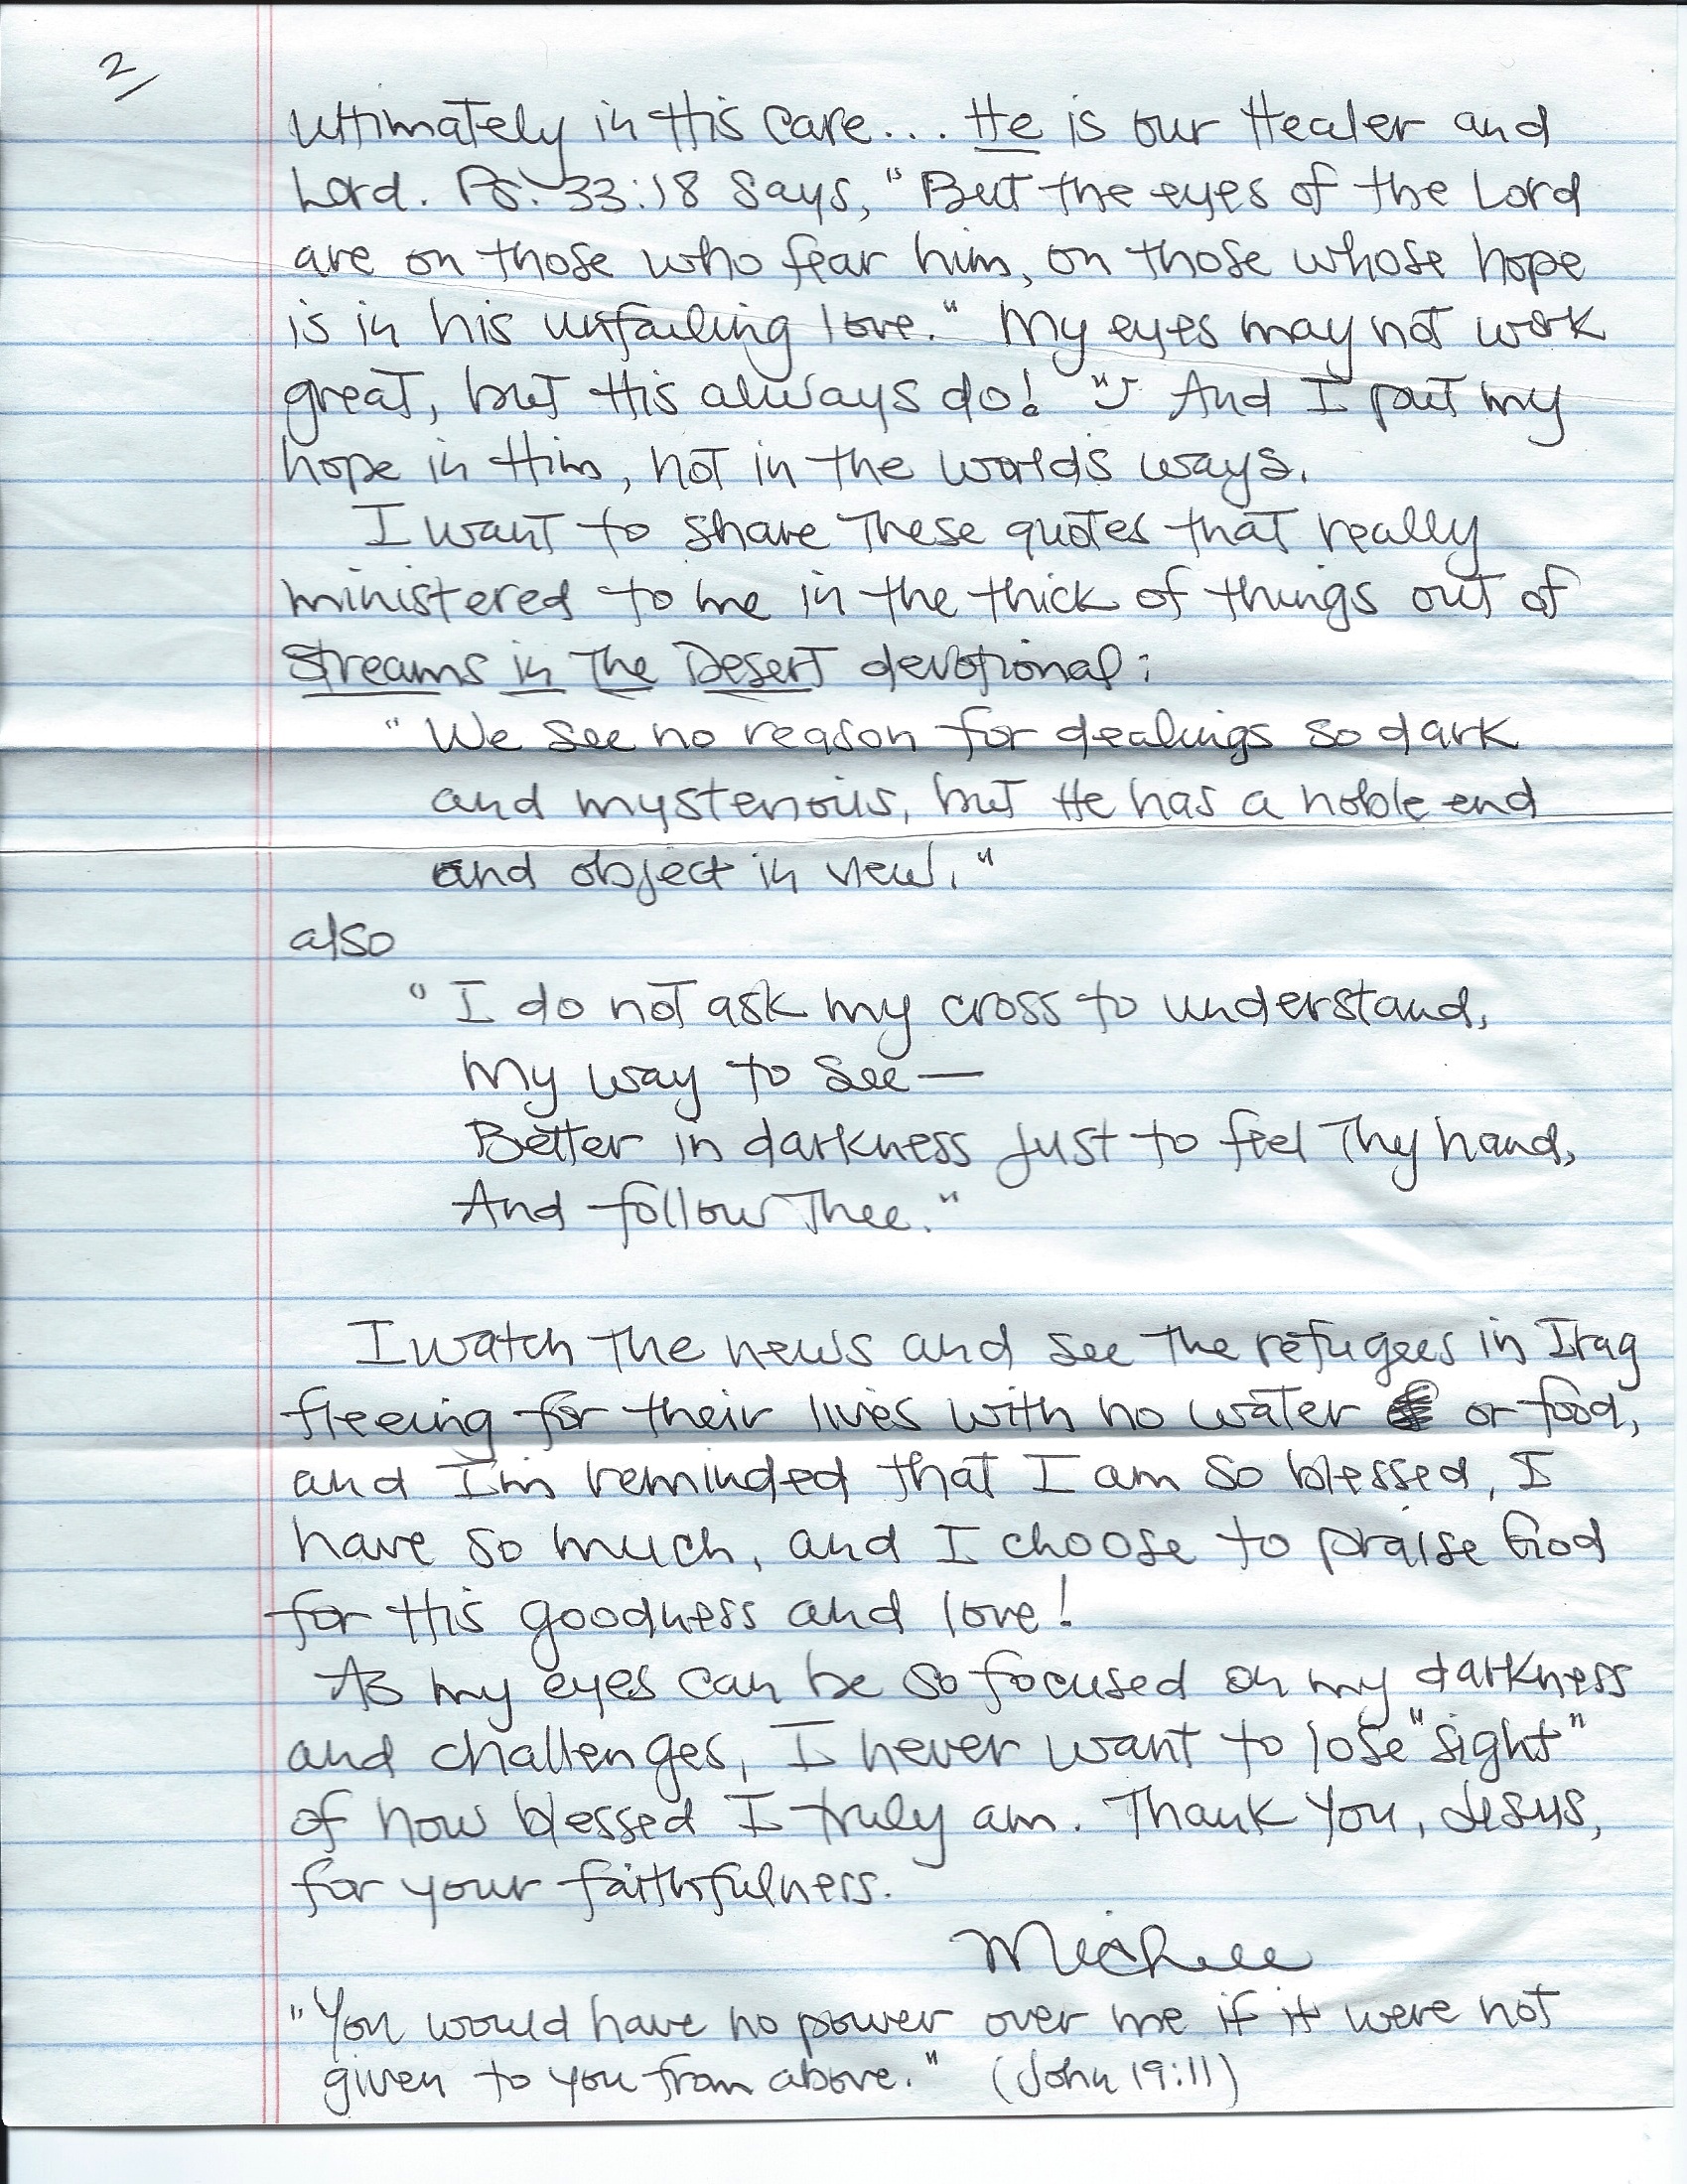 2/
ultimately in His care... He is our Healer and
Lord. Ps. 33:18 says, "But the eyes of the Lord
are on those who fear him, on those whose hope
is in his unfailing love." My eyes may not work
great, but His always do! And I put my
hope in Him, not in the world's ways.
I want to share these quotes that really
ministered to me in the thick of things out of
Streams in The Desert devotional:
"We see no reason for dealings so dark
and mysterious, but He has a noble end
and object in view."
also
"I do not ask my cross to understand,
My way to see—
Better in darkness just to feel Thy hand,
And follow Thee."
I watch the news and see the refugees in Iraq
fleeing for their lives with no water or food,
and I'm reminded that I am so blessed, I
have so much, and I choose to praise God
for His goodness and love!
As my eyes can be so focused on my darkness
and challenges, I never want to lose "sight"
of how blessed I truly am. Thank You, Jesus,
for your faithfulness.
Michele
"You would have no power over me if it were not
given to you from above." (John 19:11)